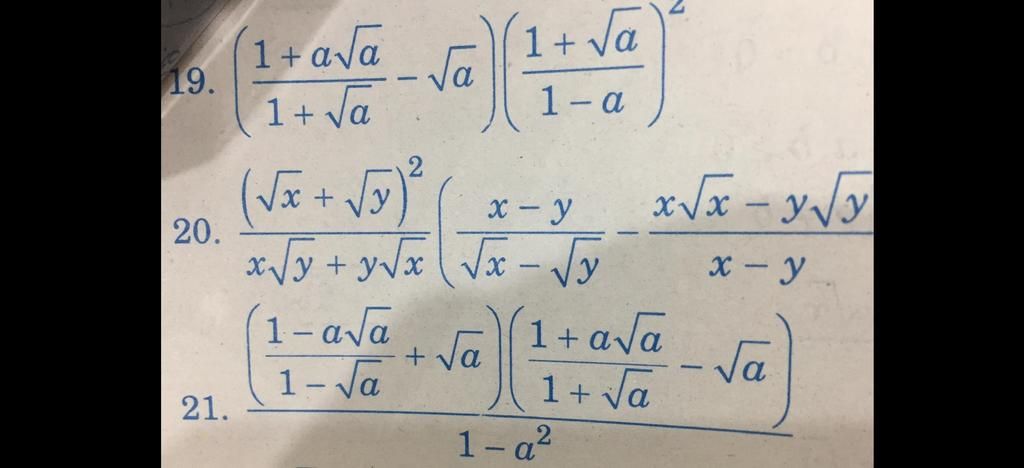 19. $\left(\frac{1+a\sqrt{a}}{1+\sqrt{a}}-\sqrt{a}\right)\left(\frac{1+\sqrt{a}}{1-a}\right)^2$
20. $\frac{(\sqrt{x}+\sqrt{y})^2}{x\sqrt{y}+y\sqrt{x}}\left(\frac{x-y}{\sqrt{x}-\sqrt{y}}-\frac{x\sqrt{x}-y\sqrt{y}}{x-y}\right.$
21. $\frac{\left(\frac{1-a\sqrt{a}}{1-\sqrt{a}}+\sqrt{a}\right)\left(\frac{1+a\sqrt{a}}{1+\sqrt{a}}-\sqrt{a}\right)}{1-a^2}$